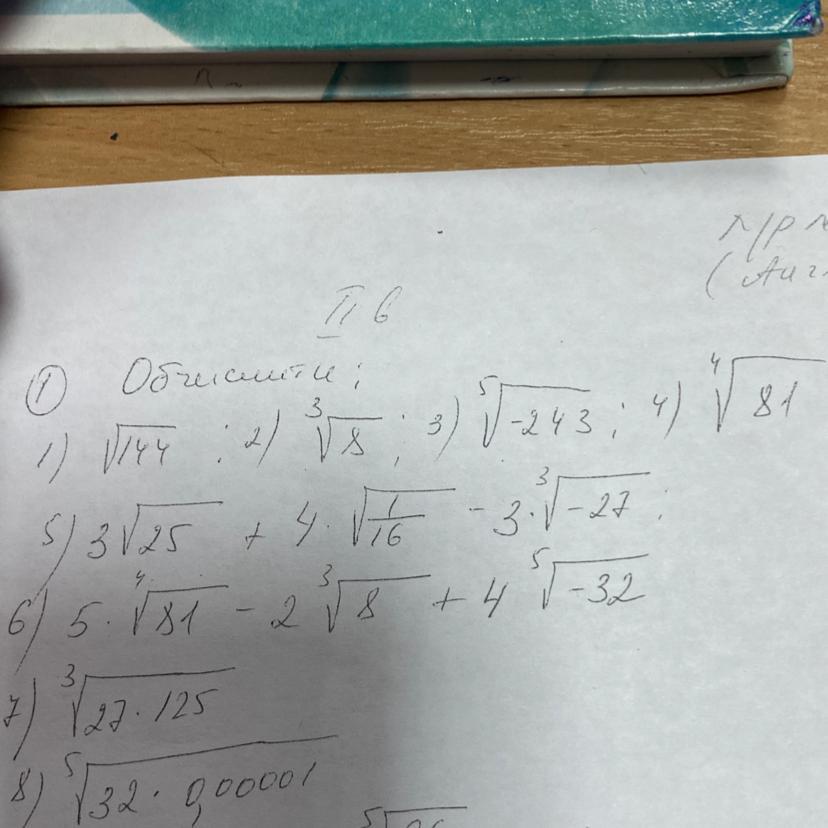 II в
① Обчислити:
1) √144 ; 2) ∛8 ; 3) ⁵√-243 ; 4) ⁴√81
5) 3√25 + 4·√(1/16) - 3·∛-27 ;
6) 5·⁴√81 - 2∛8 + 4 ⁵√-32
7) ∛27·125
8) ⁵√32·0,00001